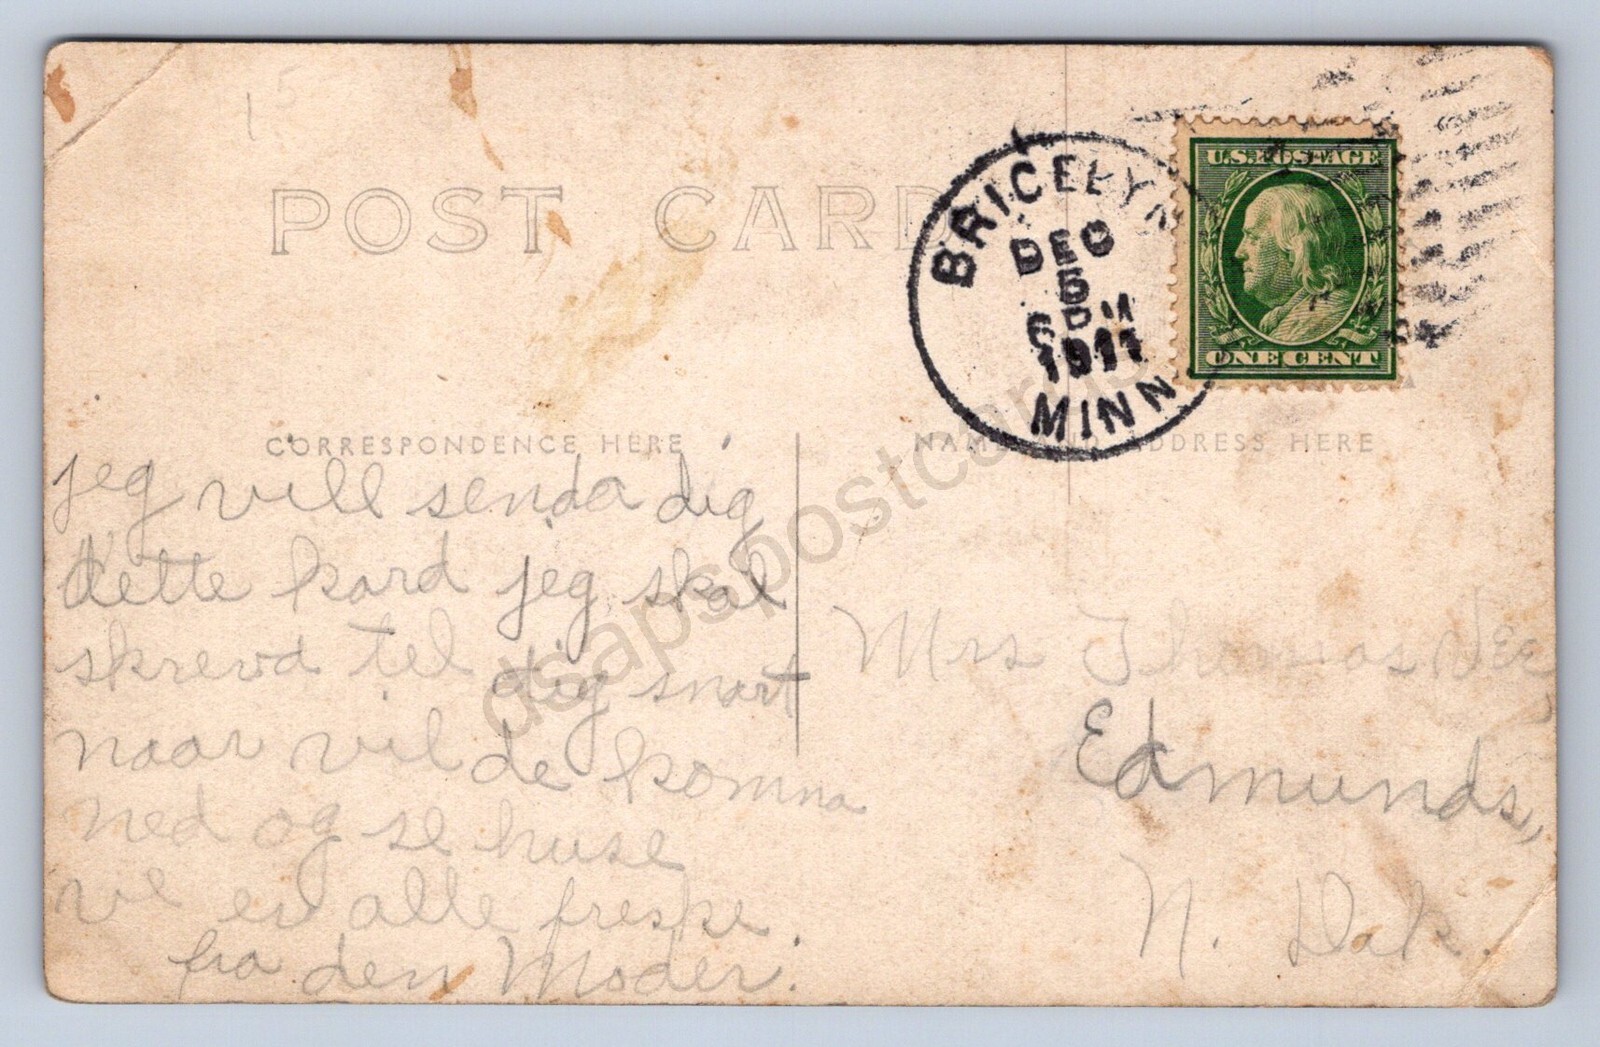 15
POST CARD
BRICELYN
DEC
5
6 PM
1911
MINN
U.S. POSTAGE
ONE CENT
CORRESPONDENCE HERE
NAME AND ADDRESS HERE
jeg vill senda dig
dette kard jeg skal
skreva til dig snart
naar vil de komma
ned og se huse
vi er alle freske.
fra den Moder.
Mrs Thomas Vee
Edmunds,
N. Dak.
dsapspostcards